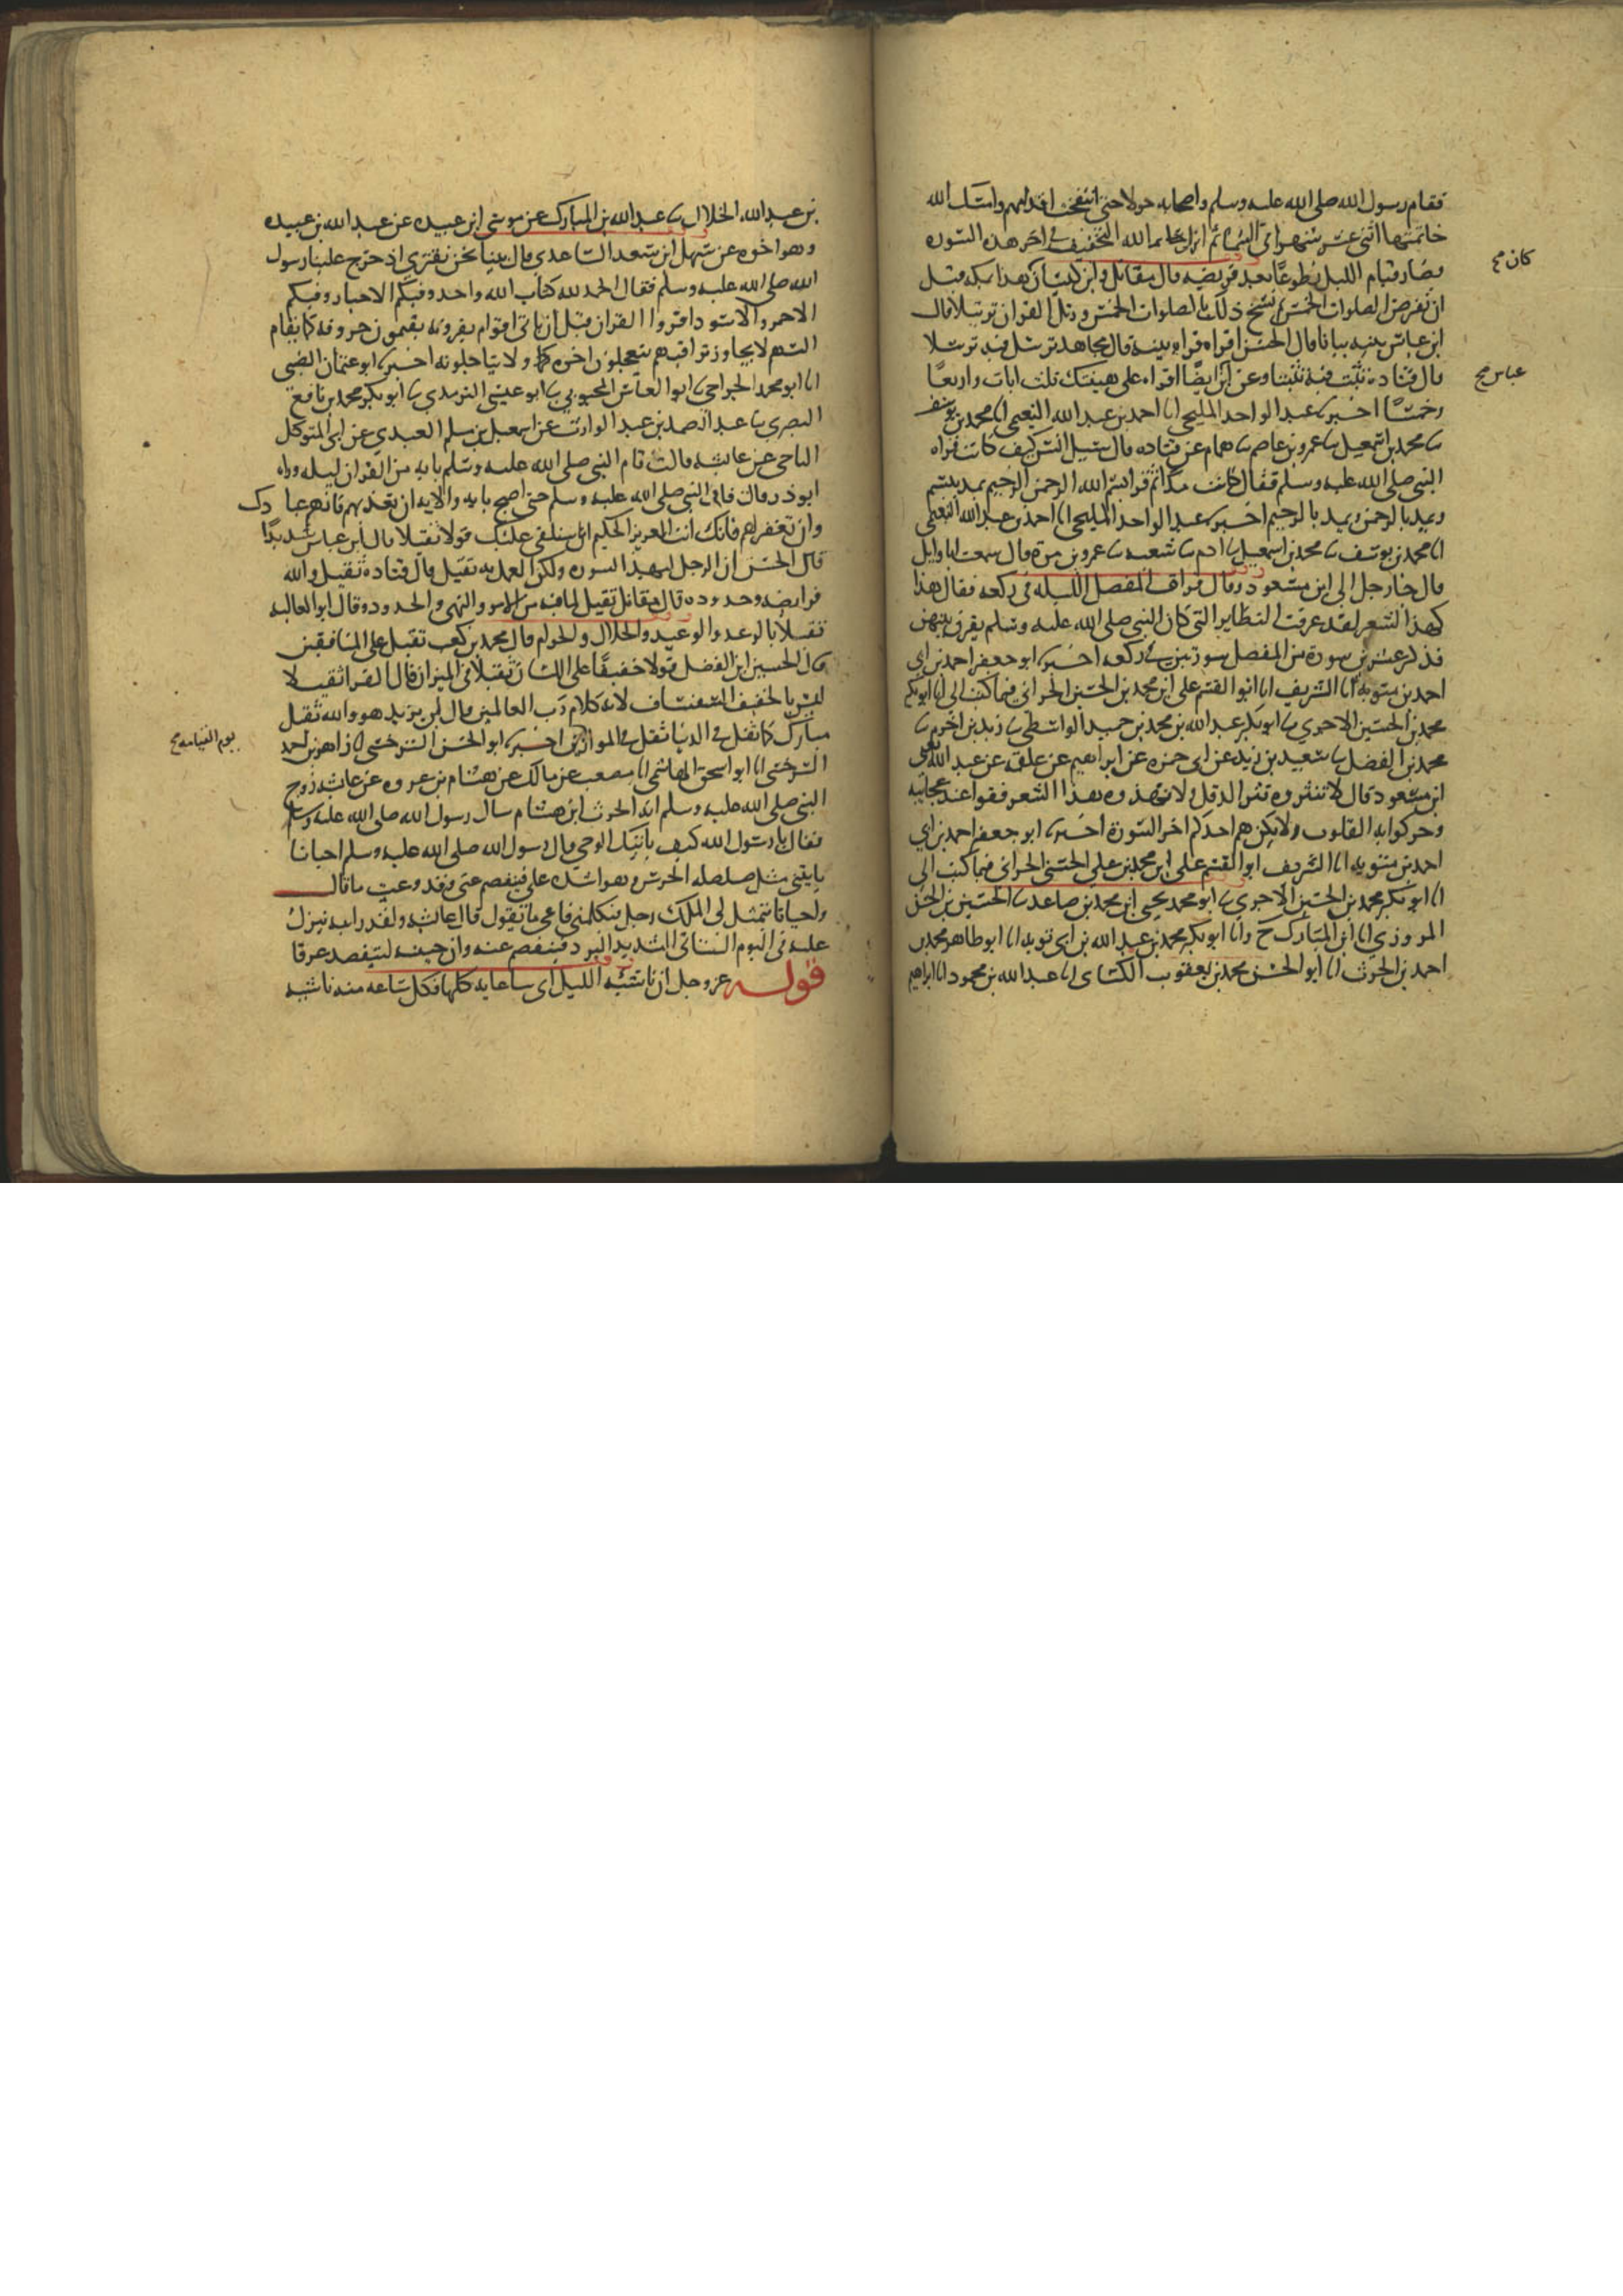 فقام رسول الله صلى الله عليه وسلم واصحابه حولا حتى انتفخت اقدامهم وامسك الله
خاتمتها اثنى عشر شهرا في السماء ثم انزل الله التخفيف في اخر هذه السورة
فصار قيام الليل تطوعا بعد فريضه قال مقاتل وابن كيسان هذا بمكه قبل
كان صح
ان تفرض الصلوات الخمس ثم نسخ ذلك بالصلوات الخمس ورتل القران ترتيلا قال
ابن عباس بينه بيانا قال الحسن اقراه قراه بينه قال مجاهد ترسل فيه ترسلا
قال قتاده تثبت فيه تثبتا وعن ابن ايضا اقراه على هينتك ثلث ايات واربعا
عباس صح
وخمسا اخبرنا عبد الواحد المليحي انا احمد بن عبد الله النعيمي انا محمد بن يوسف
نا محمد بن اسمعيل نا عمرو بن عاصم نا همام عن قتاده قال سئيل انس كيف كانت قراه
النبي صلى الله عليه وسلم فقال كانت مدا ثم قرا بسم الله الرحمن الرحيم يمد ببسم
ويمد بالرحمن ويمد بالرحيم اخبرنا عبد الواحد المليحي انا احمد بن عبد الله النعيمي
انا محمد بن يوسف نا محمد بن اسمعيل نا ادم نا شعبه نا عمرو بن مرة قال سمعت ابا وايل
قال جا رجل الى ابن مسعود وقال قرات المفصل الليله في ركعه فقال هذا
كهذ الشعر لقد عرفت النظاير التي كان النبي صلى الله عليه وسلم يقرن بينهن
فذكر عشرين سورة من المفصل سورتين في ركعه اخبرنا ابو جعفر احمد بن ابي
احمد بن متويه انا الشريف ابو القسم على بن محمد بن الحسين الحراني فيما كتب الي انا ابو بكر
محمد بن الحسين الاجري نا ابو بكر عبد الله بن محمد بن حميد الواسطي نا زيد بن اخزم نا
محمد بن الفضل نا سعيد بن زيد عن ابي حمزه عن ابراهيم عن علقمه عن عبد الله يعنى
ابن مسعود قال لا تنثروه نثر الدقل ولا تهذوه بهذا الشعر فقوا عند عجائبه
وحركوا به القلوب ولا يكن هم احدكم اخر السورة اخبرنا ابو جعفر احمد بن ابي
احمد بن متويه انا الشريف ابو القسم على ابن محمد بن علي الحسني الحراني فيما كتب الى
انا ابو بكر محمد بن الحسين الاجري نا ابو محمد يحيى ابن محمد بن صاعد نا الحسين بن الحسن
المروزي انا ابن المبارك ح وانا ابو بكر محمد بن عبد الله بن ابي توبه انا ابو طاهر محمد بن
احمد بن الحرث انا ابو الحسن محمد بن يعقوب الكسائي انا عبد الله بن محمود انا ابراهيم
بن عبد الله الخلال نا عبد الله بن المبارك عن موسى ابن عبيده عن عبد الله بن عبيده
وهو اخوه عن سهل ابن سعد الساعدي قال بينا نحن نقتري اذ خرج علينا رسول
الله صلى الله عليه وسلم فقال الحمد لله كتاب الله واحد وفيكم الاحبار وفيكم
الاحمر والاسود اقروا القران قبل ان ياتى اقوام يقرونه يقيمون حروفه كما يقام
السهم لا يجاوز تراقيهم يتعجلون اجره ولا يتاجلونه اخبرنا ابو عثمان الضبى
انا ابو محمد الجراحي نا ابو العباس المحبوبي نا ابو عيسى الترمدي نا ابو بكر محمد بن نافع
البصري نا عبد الصمد بن عبد الوارث عن اسمعيل بن مسلم العبدي عن ابي المتوكل
الناجى عن عايشه قالت قام النبي صلى الله عليه وسلم بايه من القران ليله ورواه
ابو ذر قال قام النبي صلى الله عليه وسلم حتى اصبح بايه والايه ان تعذبهم فانهم عبادك
وان تغفر لهم فانك انت العزيز الحكيم انا سنلقى عليك قولا ثقيلا قال ابن عباس شديدا
قال الحسن ان الرجل ليهذ السوره ولكن العمل به ثقيل قال قتادة ثقيل والله
فرايضه وحدوده قال مقاتل ثقيل لما فيه من الامر والنهى والحدود وقال ابو العاليه
ثقيلا بالوعد والوعيد والحلال والحرام قال محمد بن كعب ثقيل على المنافقين
قال الحسين ابن الفضل قولا خفيفا على اللسان ثقيلا في الميزان قال الفرا ثقيلا
ليس بالخفيف السفساف لانه كلام رب العالمين قال ابن يزيد هو والله ثقيل
مبارك كما ثقل في الدنيا ثقل في الموازين اخبرنا ابو الحسن السرخسي انا زاهر بن احمد
يوم القيامه صح
السرخسى انا ابو اسحق الهاشمي انا مصعب عن مالك عن هشام بن عروه عن عايشه زوج
النبي صلى الله عليه وسلم ان الحرث ابن هشام سال رسول الله صلى الله عليه وسلم
فقال يا رسول الله كيف ياتيك الوحي قال رسول الله صلى الله عليه وسلم احيانا
ياتيني مثل صلصله الجرس وهو اشده علي فيفصم عني وقد وعيت ما قال
واحيانا يتمثل لى الملك رجل يتكلمني فاعي ما يقول قال عايشه ولقد رايته ينزل
عليه في اليوم الشاتى الشديد البرد فيفصم عنه وان جبينه ليتفصد عرقا
قوله عز وجل ان ناشئه الليل اى ساعايه كلها فكل ساعه منه ناشيه